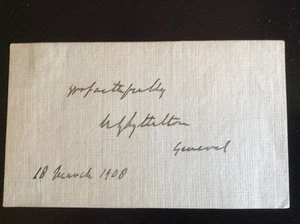 yrs faithfully
N G Lyttelton
General
18 March 1908